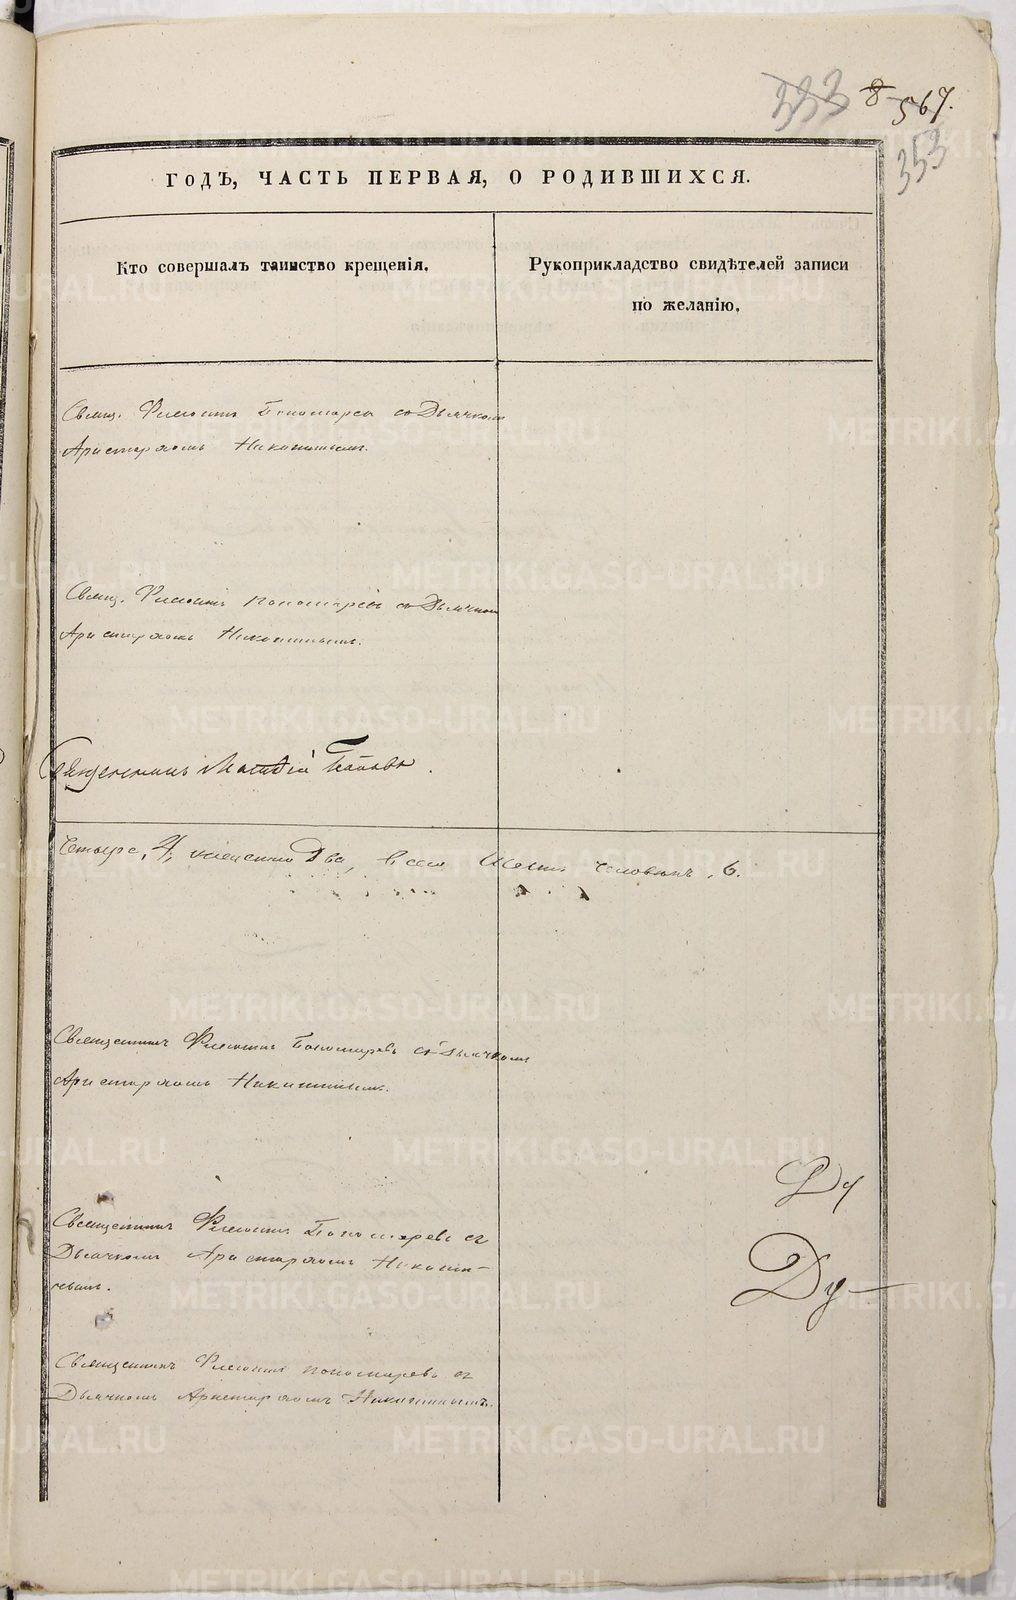 333 8 567.
353
ГОДЪ, ЧАСТЬ ПЕРВАЯ, О РОДИВШИХСЯ.
Кто совершалъ таинство крещенія.
Рукоприкладство свидѣтелей записи
по желанію.
Священ. Пономаревъ съ Дьячкомъ
Аристархомъ Никитинымъ.
Священ. Пономаревъ съ Дьячкомъ
Аристархомъ Никитинымъ.
Священникъ Матѳій Поповъ.
Четыре, 4, женска Два, всего Шесть человѣкъ, 6.
Священникъ Пономаревъ съ Дьячкомъ
Аристархомъ Никитинымъ.
Священникъ Пономаревъ съ
Дьячкомъ Аристархомъ Никити-
нымъ.
Священникъ Пономаревъ съ
Дьячкомъ Аристархомъ Никитинымъ.
Ду
Ду
METRIKI.GASO-URAL.RU